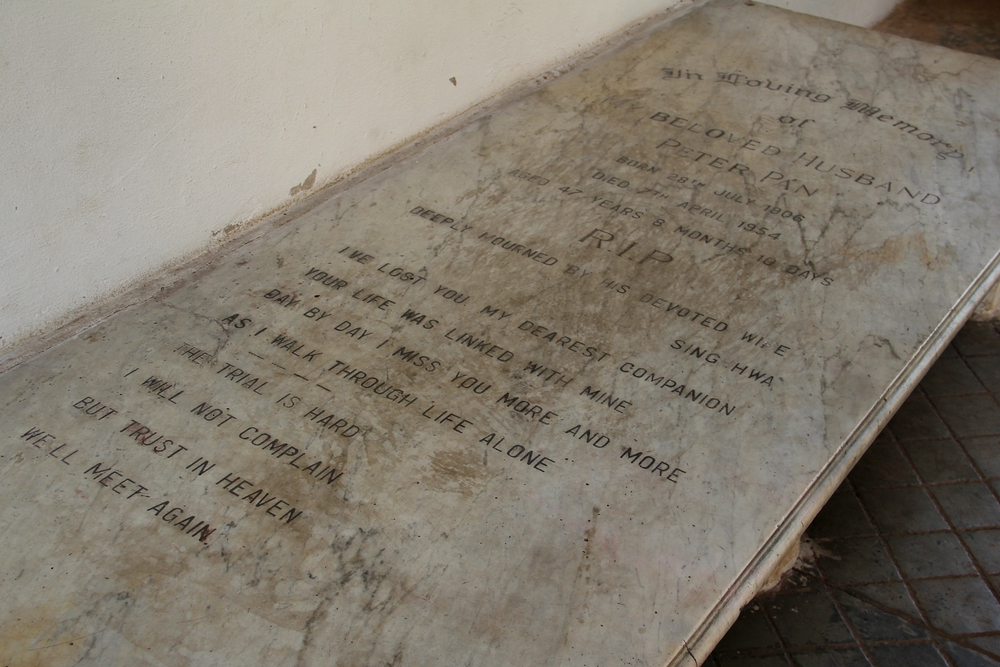 In Loving Memory
of
BELOVED HUSBAND
PETER PAN
BORN 28TH JULY 1906
DIED 7TH APRIL 1954
AGED 47 YEARS 8 MONTHS 10 DAYS
R.I.P
DEEPLY MOURNED BY HIS DEVOTED WIFE
SING HWA
I'VE LOST YOU MY DEAREST COMPANION
YOUR LIFE WAS LINKED WITH MINE
DAY BY DAY I MISS YOU MORE AND MORE
AS I WALK THROUGH LIFE ALONE
— — — —
THE TRIAL IS HARD
I WILL NOT COMPLAIN
BUT TRUST IN HEAVEN
WE'LL MEET AGAIN.